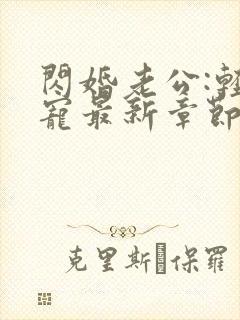 閃婚老公:輕
寵最新章節
克里斯 保羅